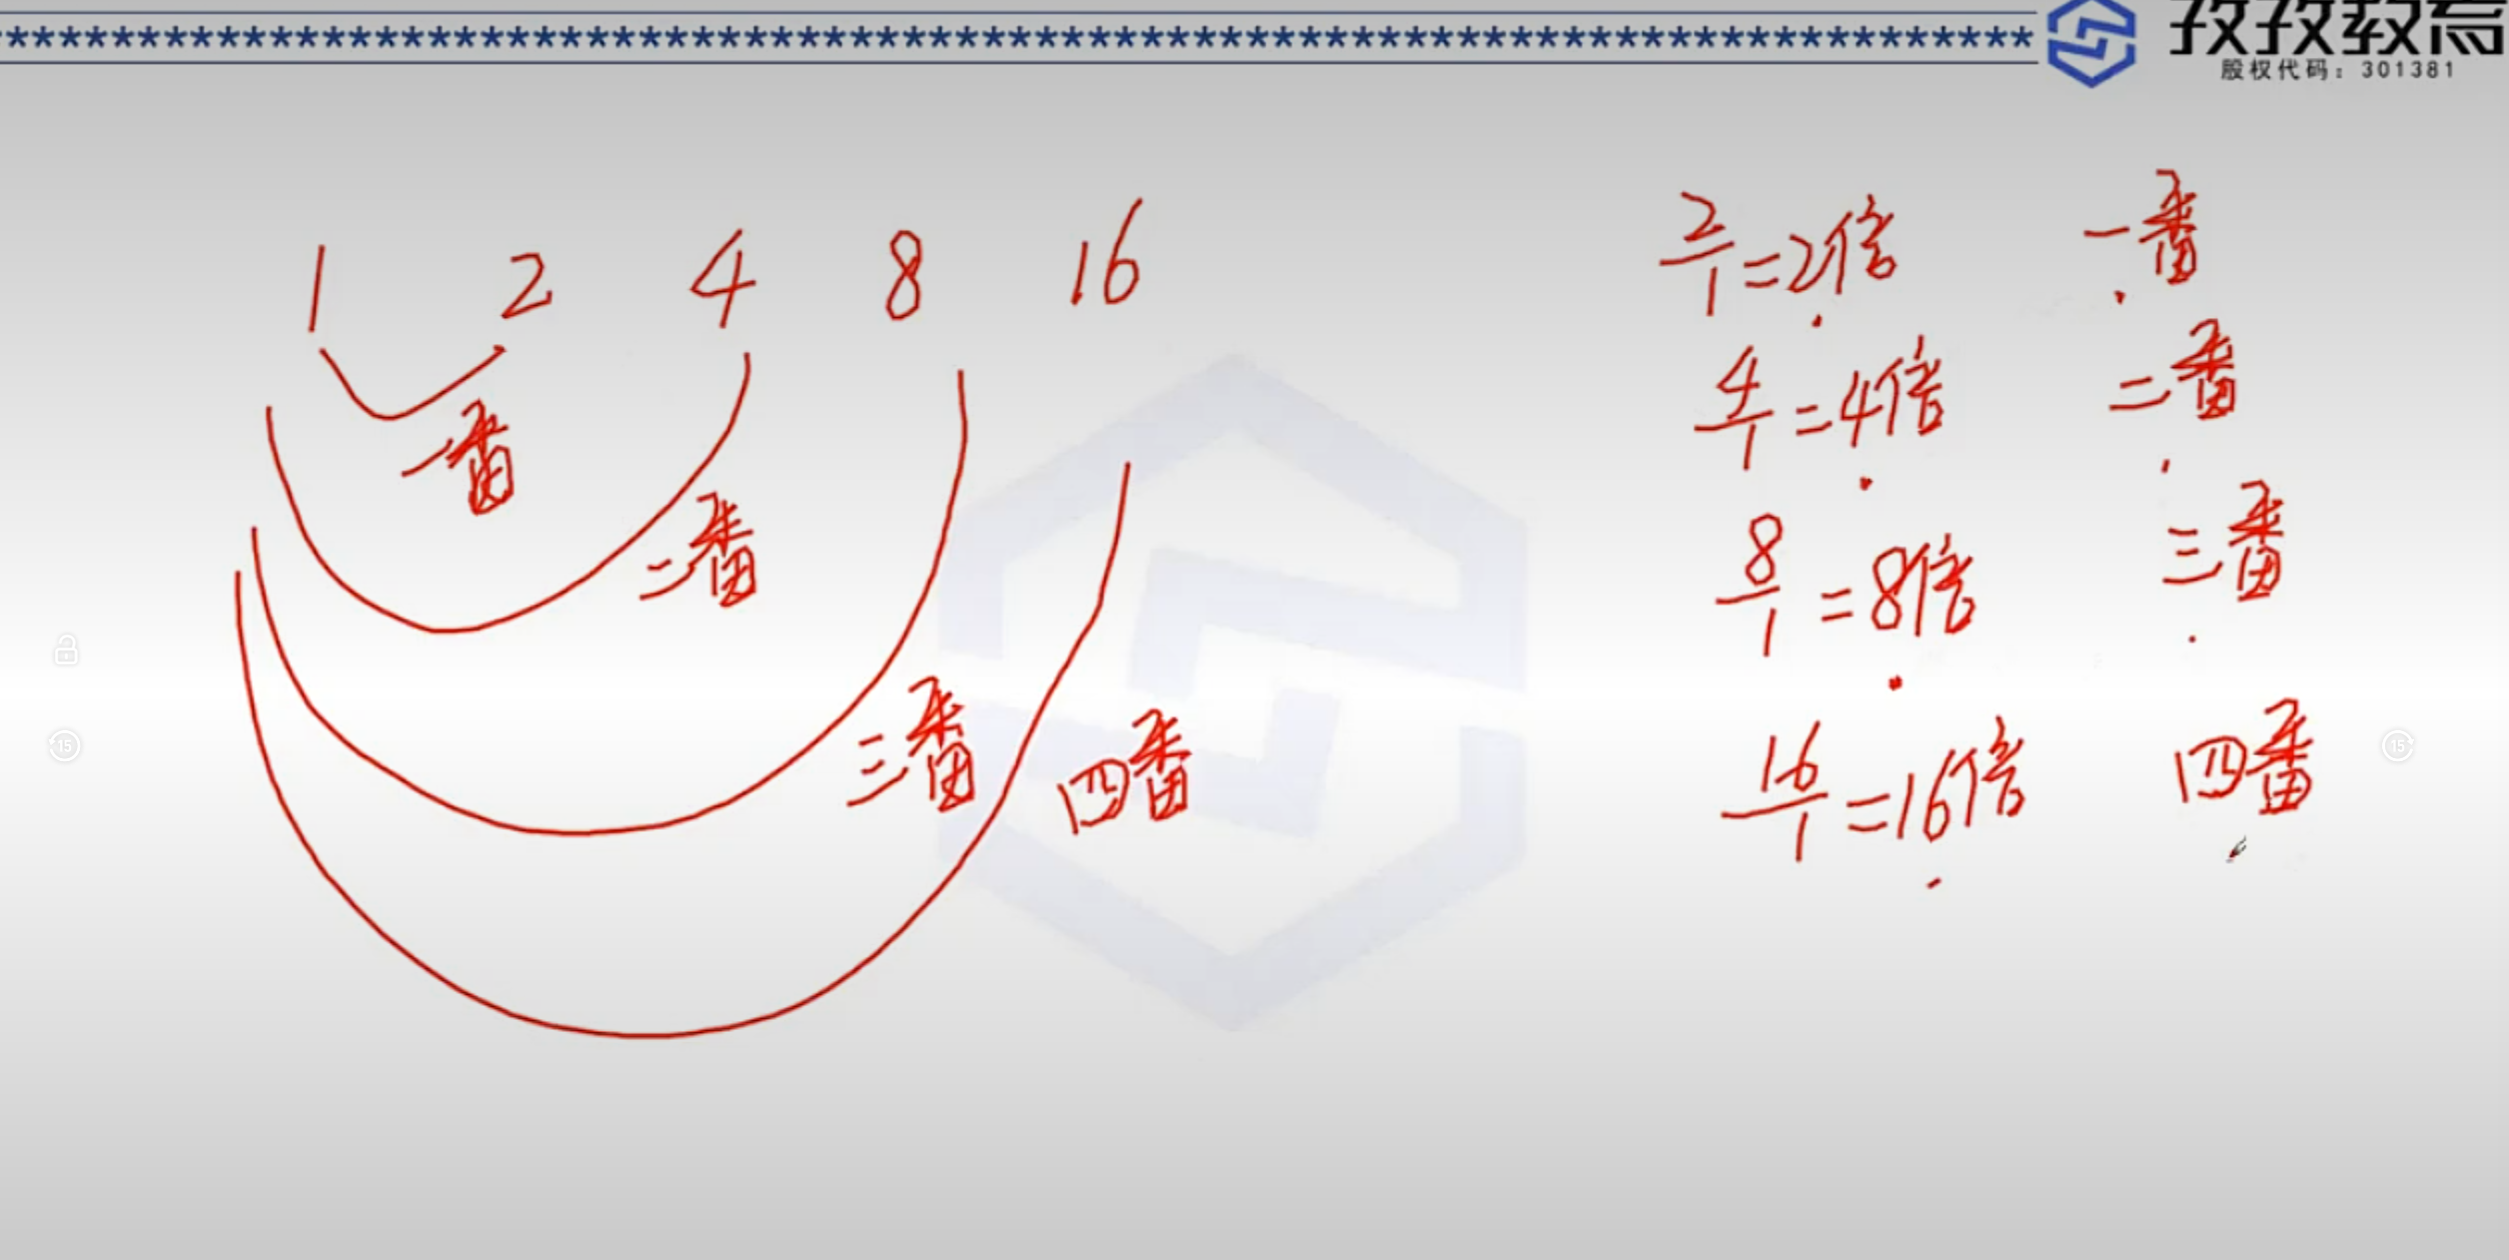 ************************************************************************************
孜孜教育
股权代码：301381
1 2 4 8 16
一番
二番
三番
四番
2/1=2倍 一番
4/1=4倍 二番
8/1=8倍 三番
16/1=16倍 四番
15
15